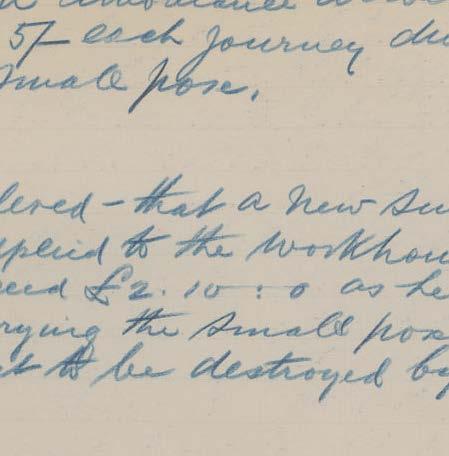 ambulance
5/- each journey du
Small pose.
dered - that a new su
pplied to the Workhou
eed £2. 10 : 0 as he
rrying the Small pox
ct to be destroyed by